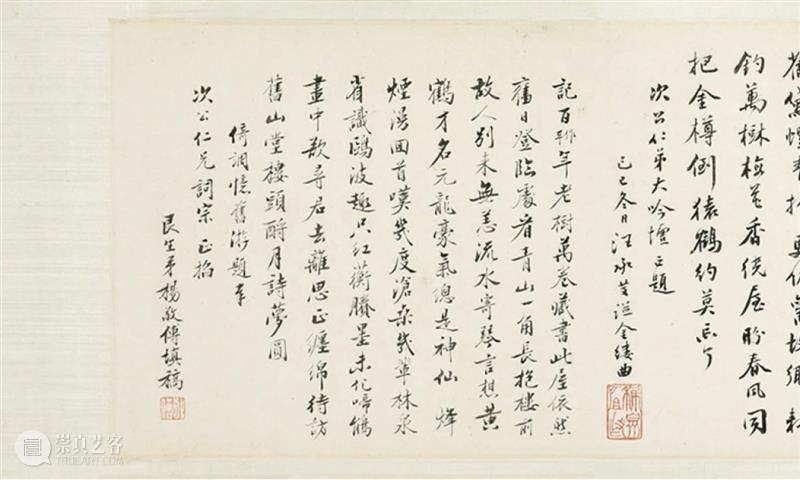 釣萬樹梅花香繞屋盼春風同
把金樽倒猿鶴約莫忘了
次公仁弟大吟壇正題
己巳冬日汪承 金縷曲
記百年老樹萬卷藏書此屋依然
舊日登臨處看青山一角長抱樓前
故人別來無恙流水寄琴言想黃
鶴才名元龍豪氣總是神仙 烽
煙漫回首嘆幾度滄桑幾輩林泉
省識鷗波趣只紅蘅賸墨未化啼鵑
畫中欲尋君去離思正纏綿待訪
舊山堂樓頭酹月詩夢圓
倚調憶舊游題奉
次公仁兄詞宗正拍
艮生弟楊敬傅填稿
崇真艺客
TRUEART.COM